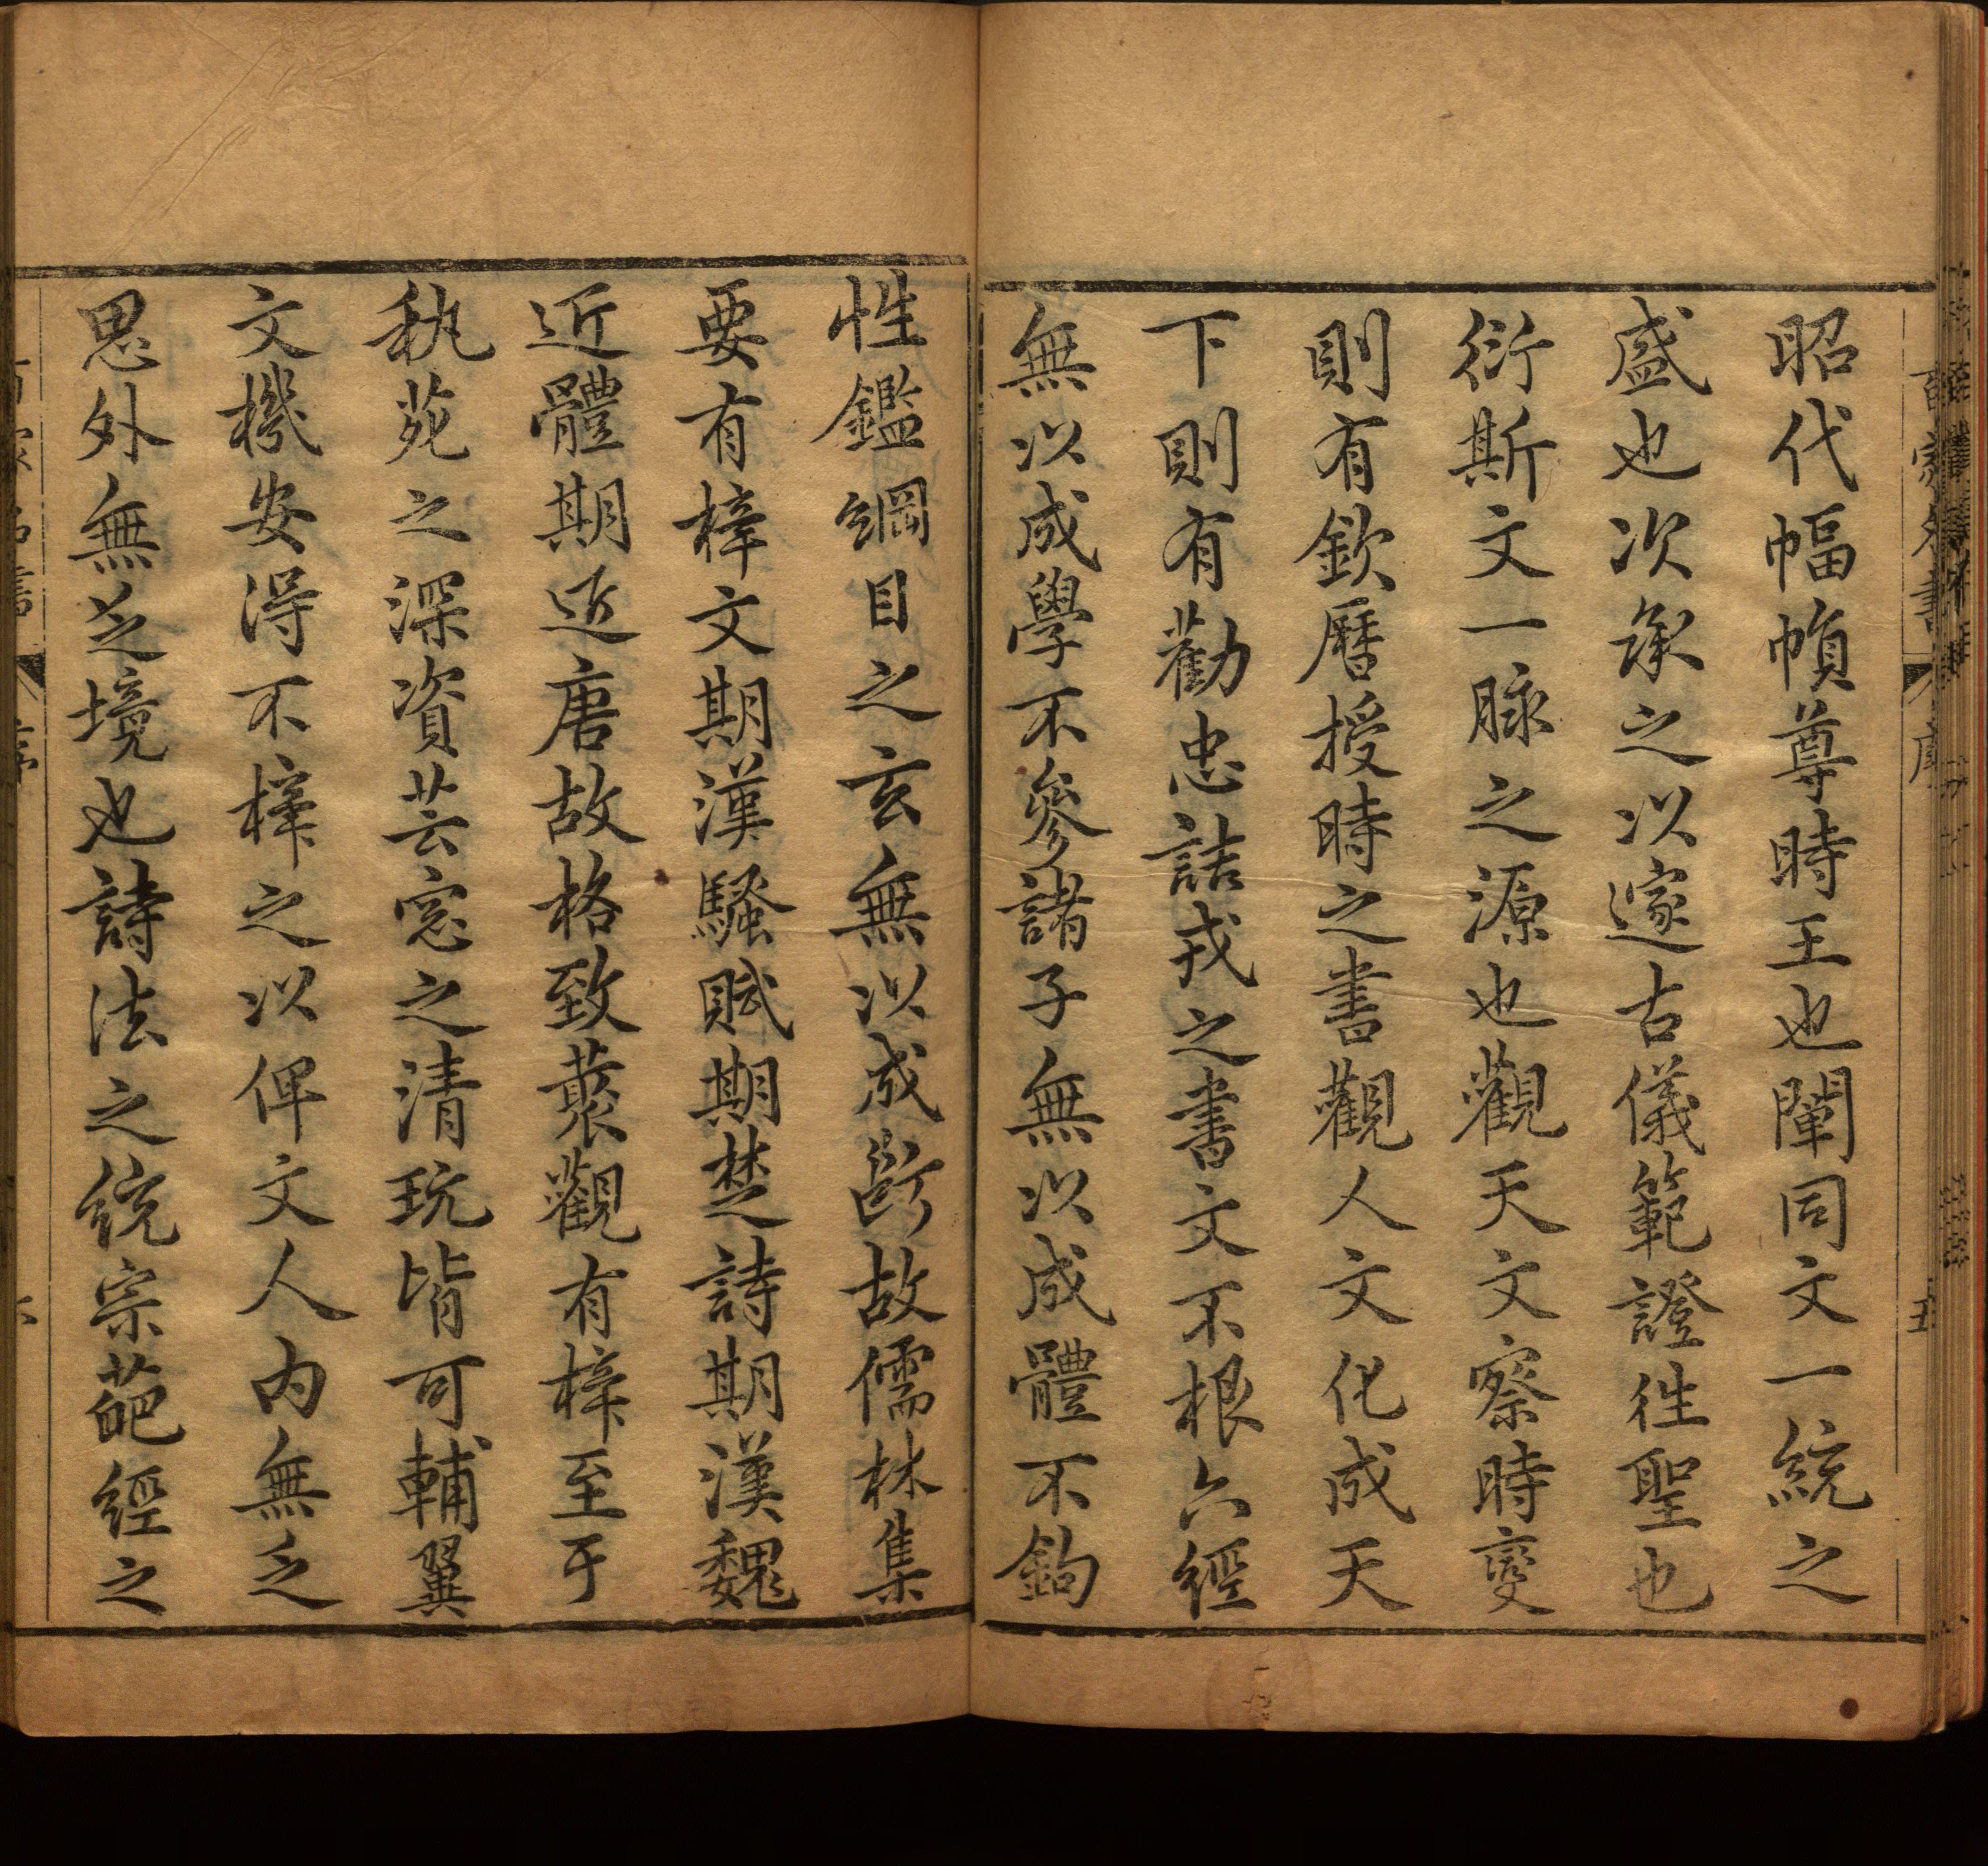 昭代幅幀尊時王也闡同文一統之
盛也次承之以邃古儀範證往聖也
衍斯文一脉之源也觀天文察時變
則有欽曆授時之書觀人文化成天
下則有勸忠詰戎之書文不根六經
無以成學不參諸子無以成體不鈎
性鑑綱目之玄無以成斷故儒林集
要有梓文期漢騷賦期楚詩期漢魏
近體期近唐故格致藂觀有梓至于
秇苑之深資芸窓之清玩皆可輔翼
文機安得不梓之以俾文人內無乏
思外無乏境也詩法之統宗葩經之